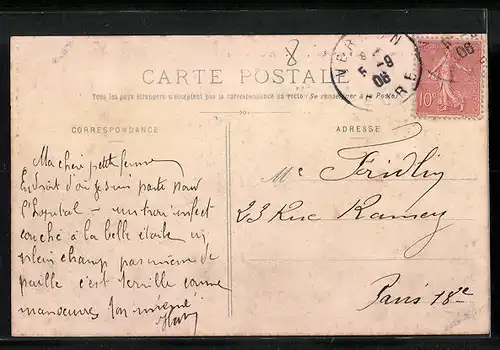 8
CARTE POSTALE
Tous les pays étrangers n'acceptent pas la correspondance au recto (Se renseigner à la Poste)
VERNON
5 -9
06
EURE
10c
06
CORRESPONDANCE
Ma chère petite femme
Endroit d'où je suis parti pour
l'hopital - un trou infect
couché à la belle étoile en
plein champ pas même de
paille c'est terrible comme
manoeuvres Ton
ADRESSE
Me Fridlin
23 Rue Ramey
Paris 18e